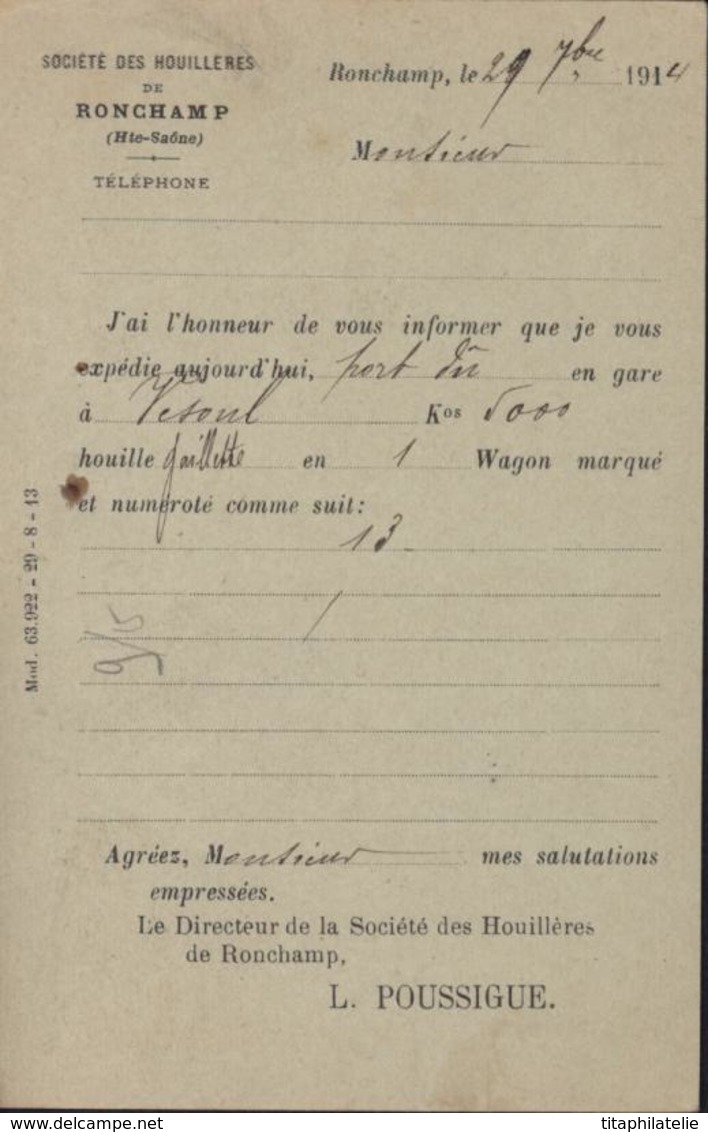 SOCIÉTÉ DES HOUILLÈRES
DE
RONCHAMP
(Hte-Saône)
TÉLÉPHONE
Ronchamp, le 29 7bre 1914
Monsieur
J'ai l'honneur de vous informer que je vous
expédie aujourd'hui, port dû en gare
à Vesoul Kos 5000
houille gaillette en 1 Wagon marqué
et numéroté comme suit:
13
Mod. 63.922 - 29 - 8 - 13
9/15
Agréez, Monsieur mes salutations
empressées.
Le Directeur de la Société des Houillères
de Ronchamp,
L. POUSSIGUE.
titaphilatelie